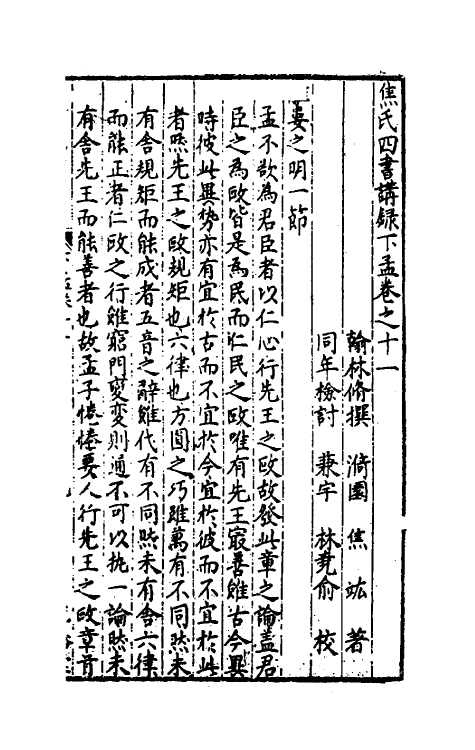 焦氏四書講録下孟卷之十一
翰林脩撰 漪園 焦 竑 著
同年檢討 兼宇 林堯俞 校
婁之明一節
孟不欲為君臣者以仁心行先王之政故發此章之論盖君
臣之為政皆是為民而仁民之政唯有先王寂善雖古今異
時彼此異势亦有宜於古而不宜於今宜於彼而不宜於此
者然先王之政規矩也六律也方圓之巧雖萬有不同然未
有舍規矩而能成者五音之辭雖代有不同然未有舍六律
而能正者仁政之行雖窮門愛変則通不可以执一論然未
有舍先王而能善者也故孟子惓惓要人行先王之政章首